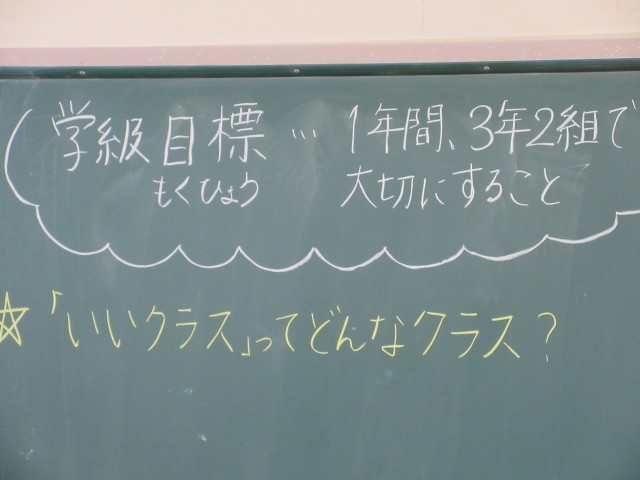 学級目標…1年間、3年2組で
もくひょう 大切にすること
☆「いいクラス」ってどんなクラス?